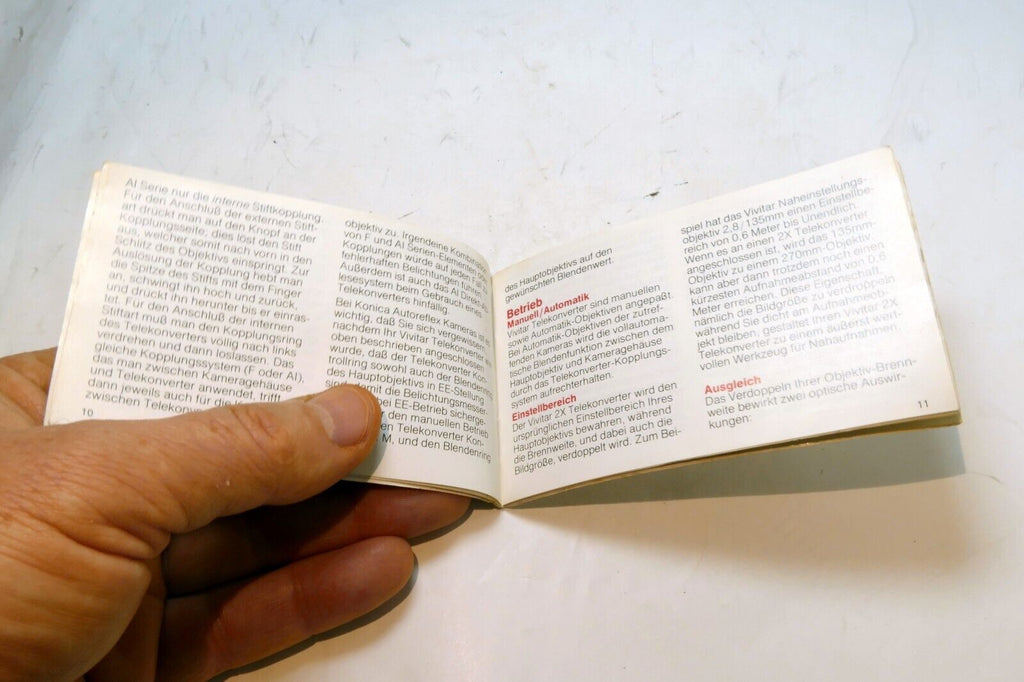 AI Serie nur die interne Stiftkopplung.
Für den Anschluß der externen Stift-
art drückt man auf den Knopf an der
Kopplungsseite, dies löst den Stift
aus, welcher somit nach vorn in den
Schlitz des Objektivs einspringt. Zur
Auslösung der Kopplung hebt man
die Spitze des Stifts mit dem Finger
an, schwingt ihn hoch und zurück
und drückt ihn herunter bis er einras-
tet. Für den Anschluß der internen
Stiftart muß man den Kopplungsring
des Telekonverters völlig nach links
verdrehen und dann loslassen. Das
gleiche Kopplungssystem (F oder AI),
das man zwischen Kameragehäuse
und Telekonverter anwendet, trifft
dann jeweils auch für die
zwischen
10
objektiv zu. Irgendeine Kombination
von F und AI Serien-Elementen
Kopplungen würde auf jeden Fall zu
fehlerhaften Belichtungen führen.
Außerdem ist auch das AI
lesesystem beim Gebrauch eines
Telekonverters hinfällig.
Bei Konica Autoreflex Kameras ist es
wichtig, daß Sie sich vergewissern,
nachdem Ihr Vivitar Telekonverter
oben beschrieben angeschlossen
wurde, daß der Telekonverter
trollring sowohl auch der Blendenring
des Hauptobjektivs in EE-Stellung
mit die Belichtungsmesser-
bei EE-Betrieb sicherge-
den manuellen Betrieb
Telekonverter Kon-
M, und den Blendenring
des Hauptobjektivs auf den
gewünschten Blendenwert.
Betrieb
Manuell/Automatik
Vivitar Telekonverter sind manuellen
sowie Automatik-Objektiven angepaßt.
Bei Automatik-Objektiven der zutref-
fenden Kameras wird die vollautoma-
tische Blendenfunktion zwischen dem
Hauptobjektiv und Kameragehäuse
durch das Telekonverter-Kopplungs-
system aufrechterhalten.
Einstellbereich
Der Vivitar 2X Telekonverter wird den
ursprünglichen Einstellbereich Ihres
Hauptobjektivs bewahren, während
die Brennweite, und dabei auch die
Bildgröße, verdoppelt wird. Zum Bei-
spiel hat das Vivitar Naheinstellungs-
objektiv 2,8/135mm einen Einstellbe-
reich von 0,6 Meter bis Unendlich.
Wenn es an einen 2X Telekonverter
angeschlossen ist, wird das 135mm
Objektiv zu einem 270mm Objektiv,
kann aber dann trotzdem noch einen
kürzesten Aufnahmeabstand von 0,6
Meter erreichen. Diese Eigenschaft,
nämlich die Bildgröße zu verdoppeln
während Sie dicht am Aufnahmeob-
jekt bleiben, gestaltet Ihren Vivitar 2X
Telekonverter zu einem äußerst wert-
vollen Werkzeug für Nahaufnahmen.
Ausgleich
Das Verdoppeln Ihrer Objektiv-Brenn-
weite bewirkt zwei optische Auswir-
kungen:
11